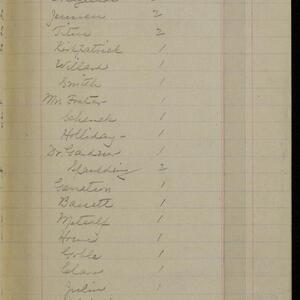 Jensen 2
Titus 2
Kirkpatrick 1
Willard 1
Smith 1
Mr. Foster 1
Schenck 1
Holliday - 1
Dr. Gardner 1
Spaulding 2
Garretson 1
Bassett 1
Metcalf 1
1
Goble 1
1
Julian 1